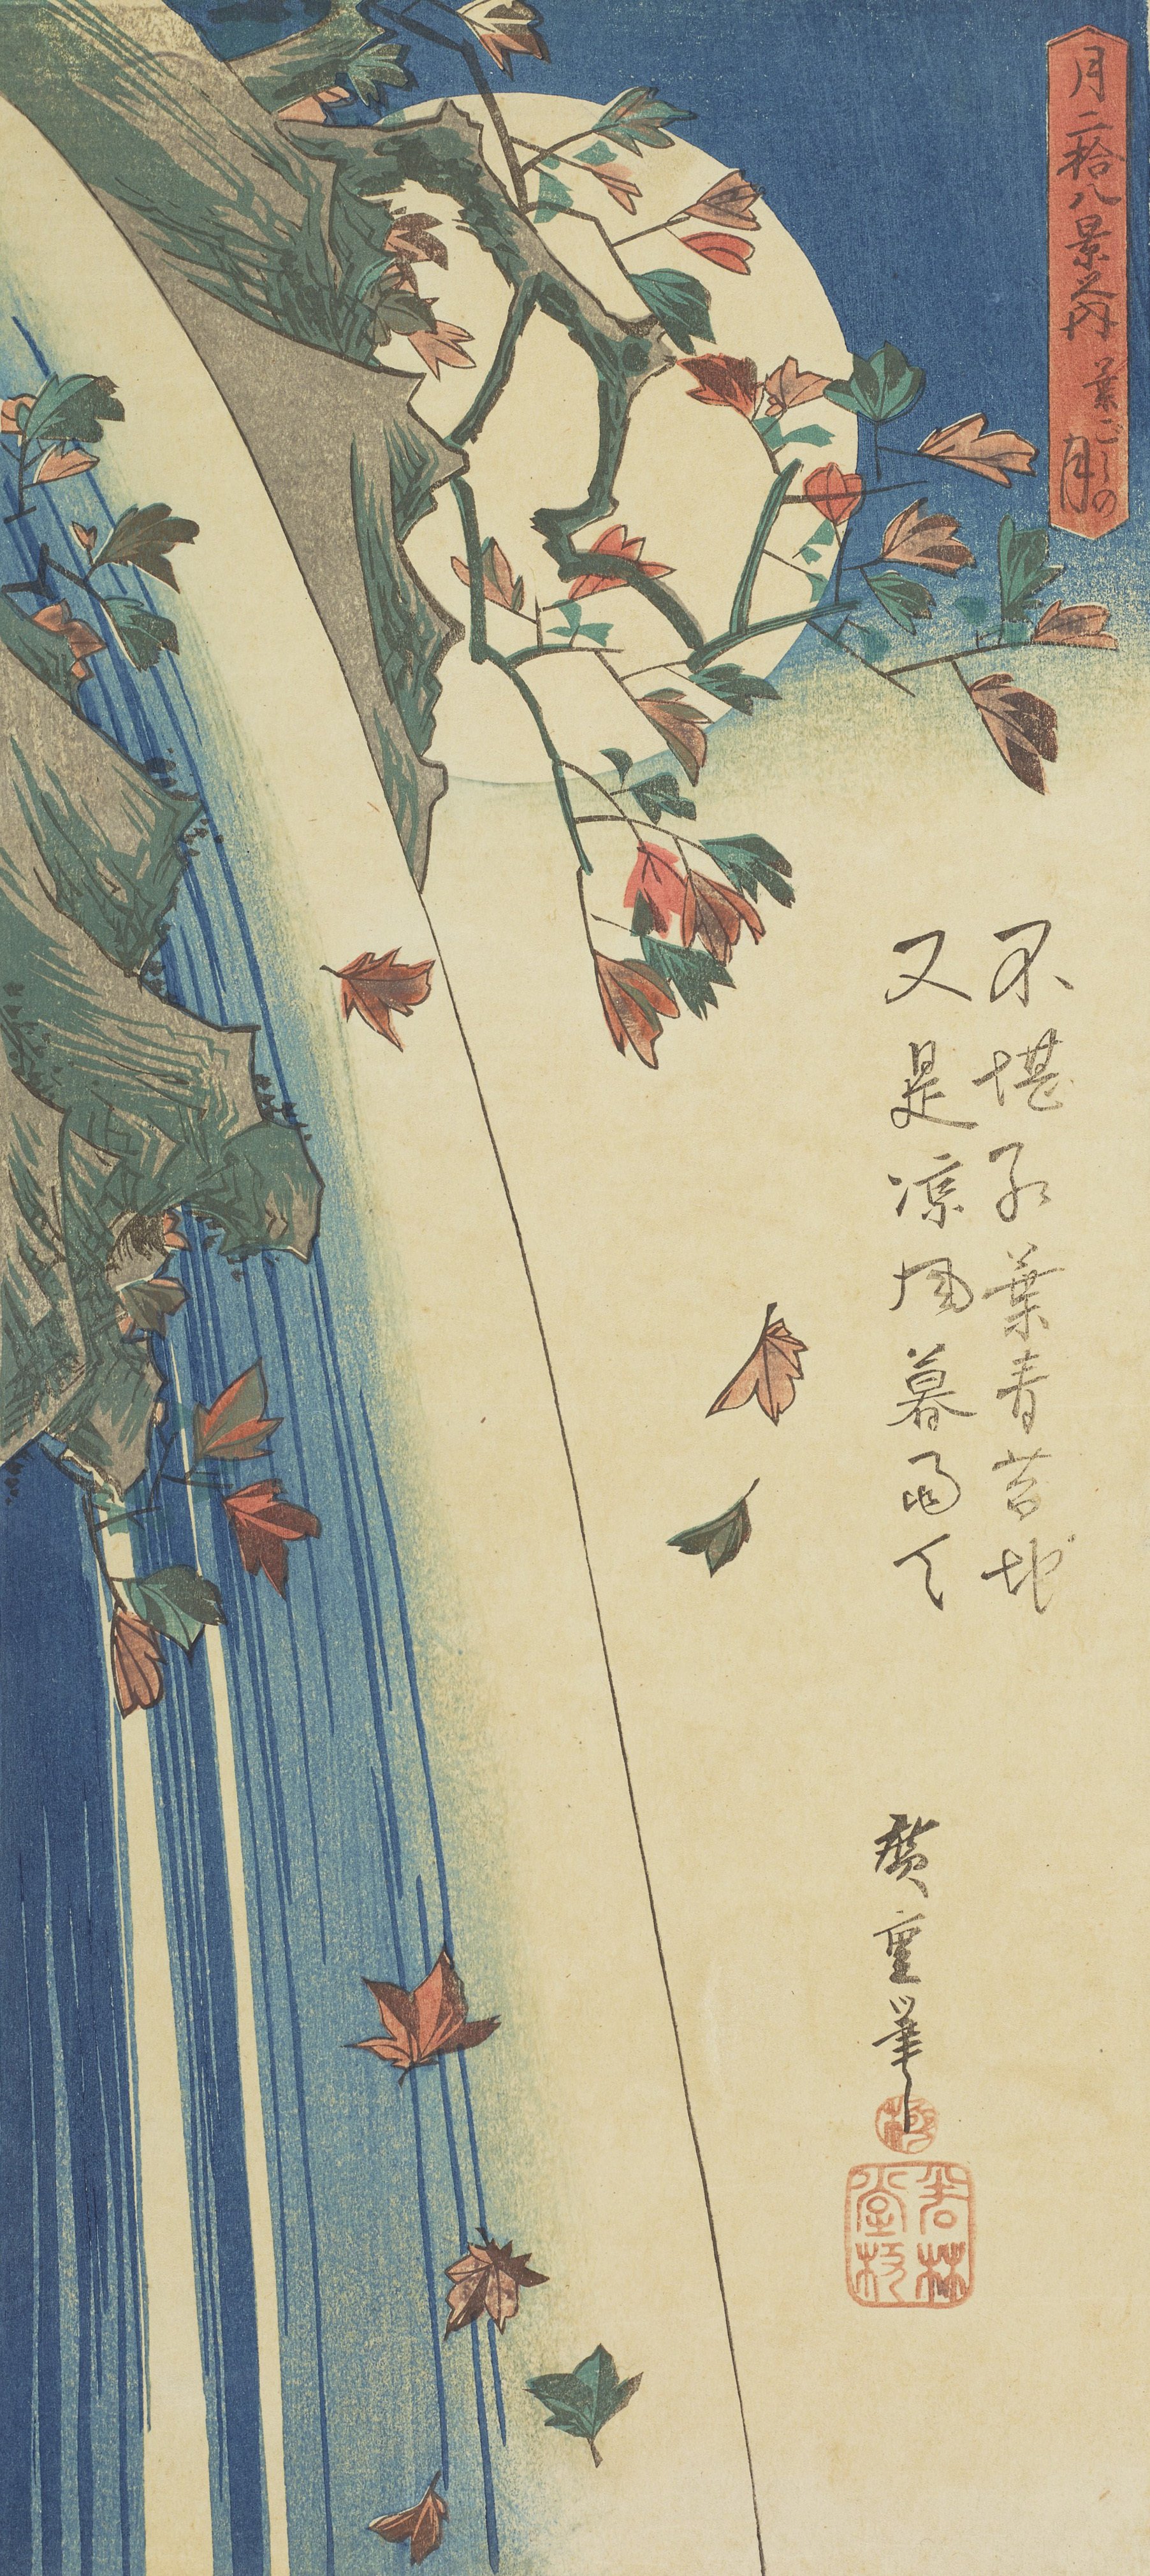 月二拾八景之内 葉ごしの月
不堪紅葉青苔地
又是凉風暮雨天
廣重筆
極
若林
堂板